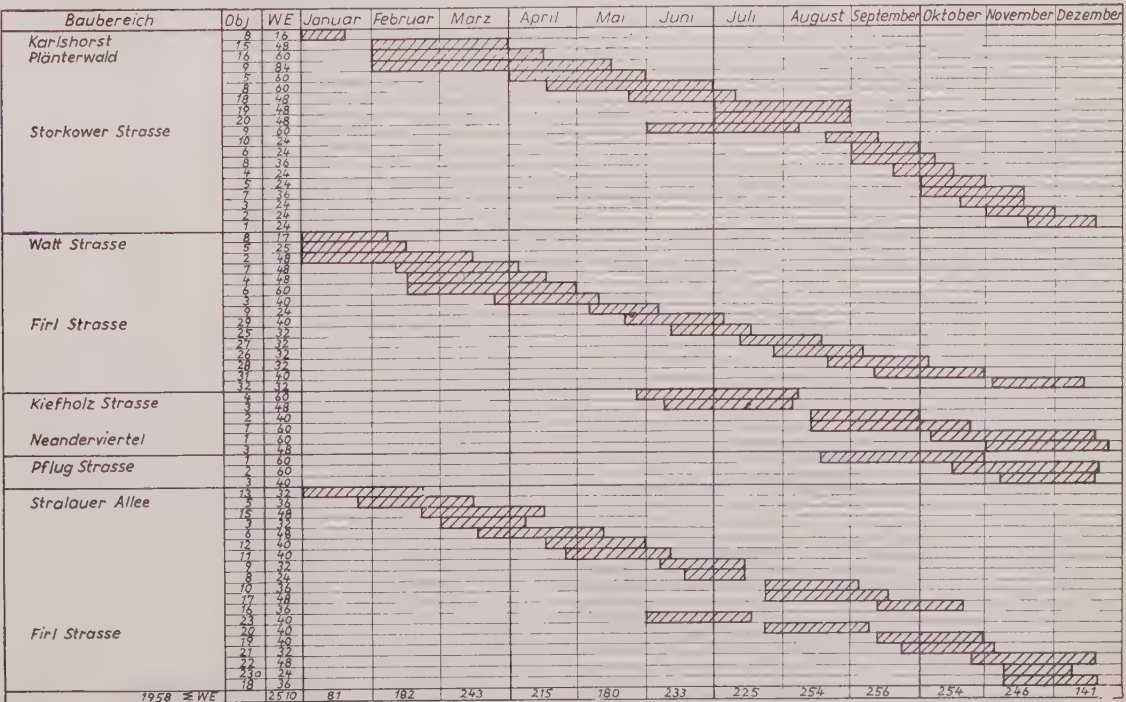 Baubereich Obj WE Januar Februar März April Mai Juni Juli August September Oktober November Dezember
Karlshorst 8 16
15 48
Plänterwald 16 60
9 84
5 60
8 60
18 48
19 48
20 48
Storkower Strasse 9 60
10 24
6 24
8 36
4 24
5 24
7 36
3 24
2 24
1 24
Watt Strasse 8 17
5 25
2 48
7 48
4 48
6 60
3 40
9 24
Firl Strasse 29 40
25 32
27 32
26 32
28 32
31 40
32 32
Kiefholz Strasse 4 60
3 48
2 40
1 60
Neanderviertel 1 60
3 48
1 60
Pflug Strasse 2 60
3 40
Stralauer Allee 13 32
5 36
15 48
3 32
6 48
12 40
11 40
9 32
8 24
10 36
17 48
16 36
23 40
Firl Strasse 20 40
19 40
21 32
22 48
23a 24
18 36
1958 Σ WE 2510 81 182 243 215 180 233 225 254 256 254 246 141